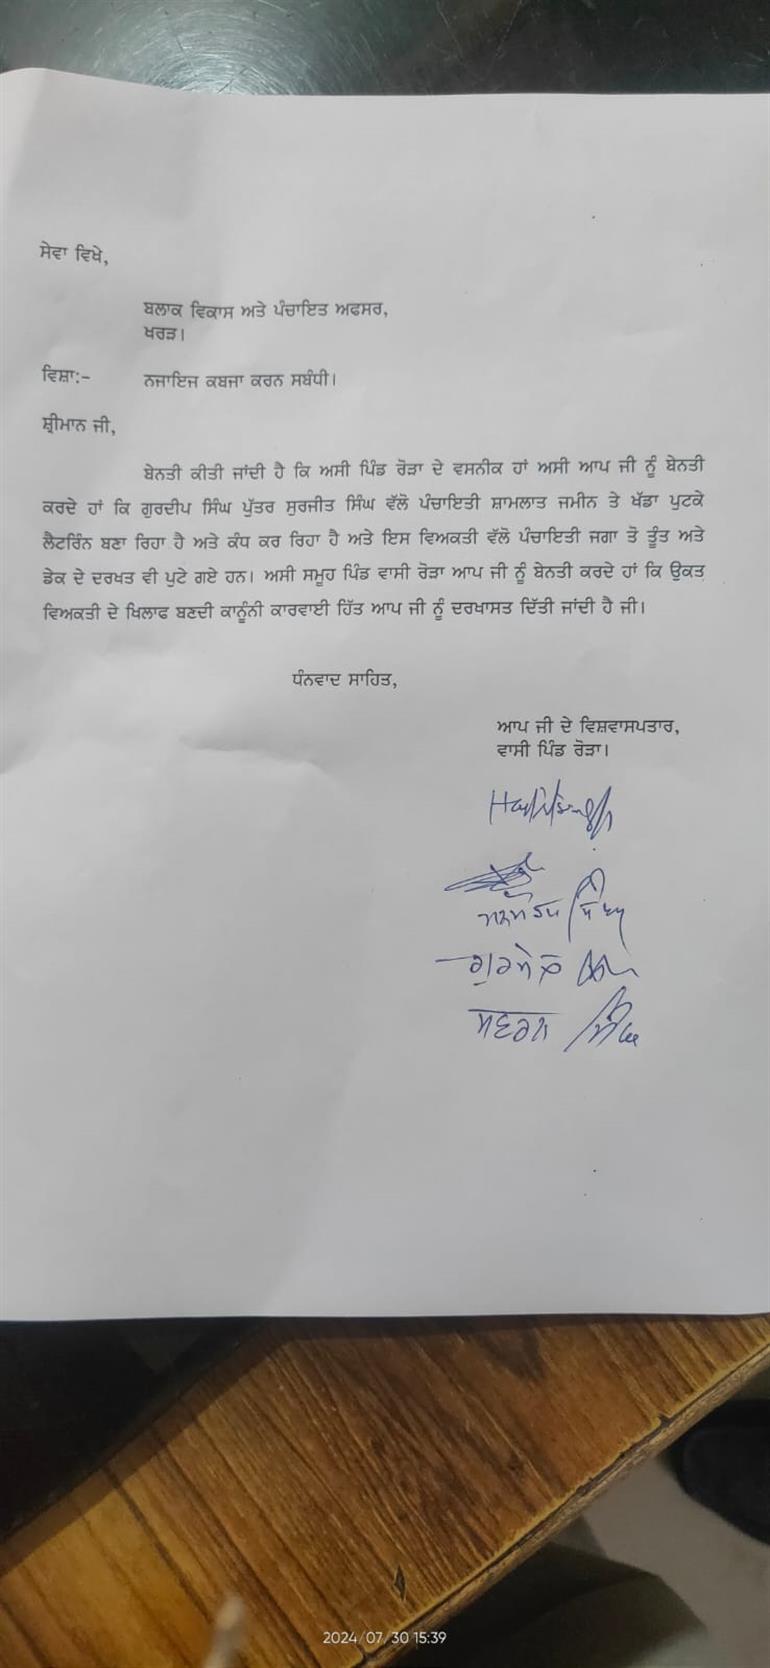 ਸੇਵਾ ਵਿਖੇ,
ਬਲਾਕ ਵਿਕਾਸ ਅਤੇ ਪੰਚਾਇਤ ਅਫਸਰ,
ਖਰੜ।
ਵਿਸ਼ਾ:- ਨਜਾਇਜ ਕਬਜਾ ਕਰਨ ਸਬੰਧੀ।
ਸ਼੍ਰੀਮਾਨ ਜੀ,
ਬੇਨਤੀ ਕੀਤੀ ਜਾਂਦੀ ਹੈ ਕਿ ਅਸੀ ਪਿੰਡ ਰੋੜਾ ਦੇ ਵਸਨੀਕ ਹਾਂ ਅਸੀ ਆਪ ਜੀ ਨੂੰ ਬੇਨਤੀ
ਕਰਦੇ ਹਾਂ ਕਿ ਗੁਰਦੀਪ ਸਿੰਘ ਪੁੱਤਰ ਸੁਰਜੀਤ ਸਿੰਘ ਵੱਲੋ ਪੰਚਾਇਤੀ ਸ਼ਾਮਲਾਤ ਜਮੀਨ ਤੇ ਖੱਡਾ ਪੁਟਕੇ
ਲੈਟਰਿੰਨ ਬਣਾ ਰਿਹਾ ਹੈ ਅਤੇ ਕੰਧ ਕਰ ਰਿਹਾ ਹੈ ਅਤੇ ਇਸ ਵਿਅਕਤੀ ਵੱਲੋ ਪੰਚਾਇਤੀ ਜਗਾ ਤੋ ਤੂੰਤ ਅਤੇ
ਡੇਕ ਦੇ ਦਰਖਤ ਵੀ ਪੁਟੇ ਗਏ ਹਨ। ਅਸੀ ਸਮੂਹ ਪਿੰਡ ਵਾਸੀ ਰੋੜਾ ਆਪ ਜੀ ਨੂੰ ਬੇਨਤੀ ਕਰਦੇ ਹਾਂ ਕਿ ਉਕਤ
ਵਿਅਕਤੀ ਦੇ ਖਿਲਾਫ ਬਣਦੀ ਕਾਨੂੰਨੀ ਕਾਰਵਾਈ ਹਿੱਤ ਆਪ ਜੀ ਨੂੰ ਦਰਖਾਸਤ ਦਿੱਤੀ ਜਾਂਦੀ ਹੈ ਜੀ।
ਧੰਨਵਾਦ ਸਾਹਿਤ,
ਆਪ ਜੀ ਦੇ ਵਿਸ਼ਵਾਸਪਤਾਰ,
ਵਾਸੀ ਪਿੰਡ ਰੋੜਾ।
ਗੁਰਮੇਲ
ਸਵਰਨ ਸਿੰਘ
2024/07/30 15:39